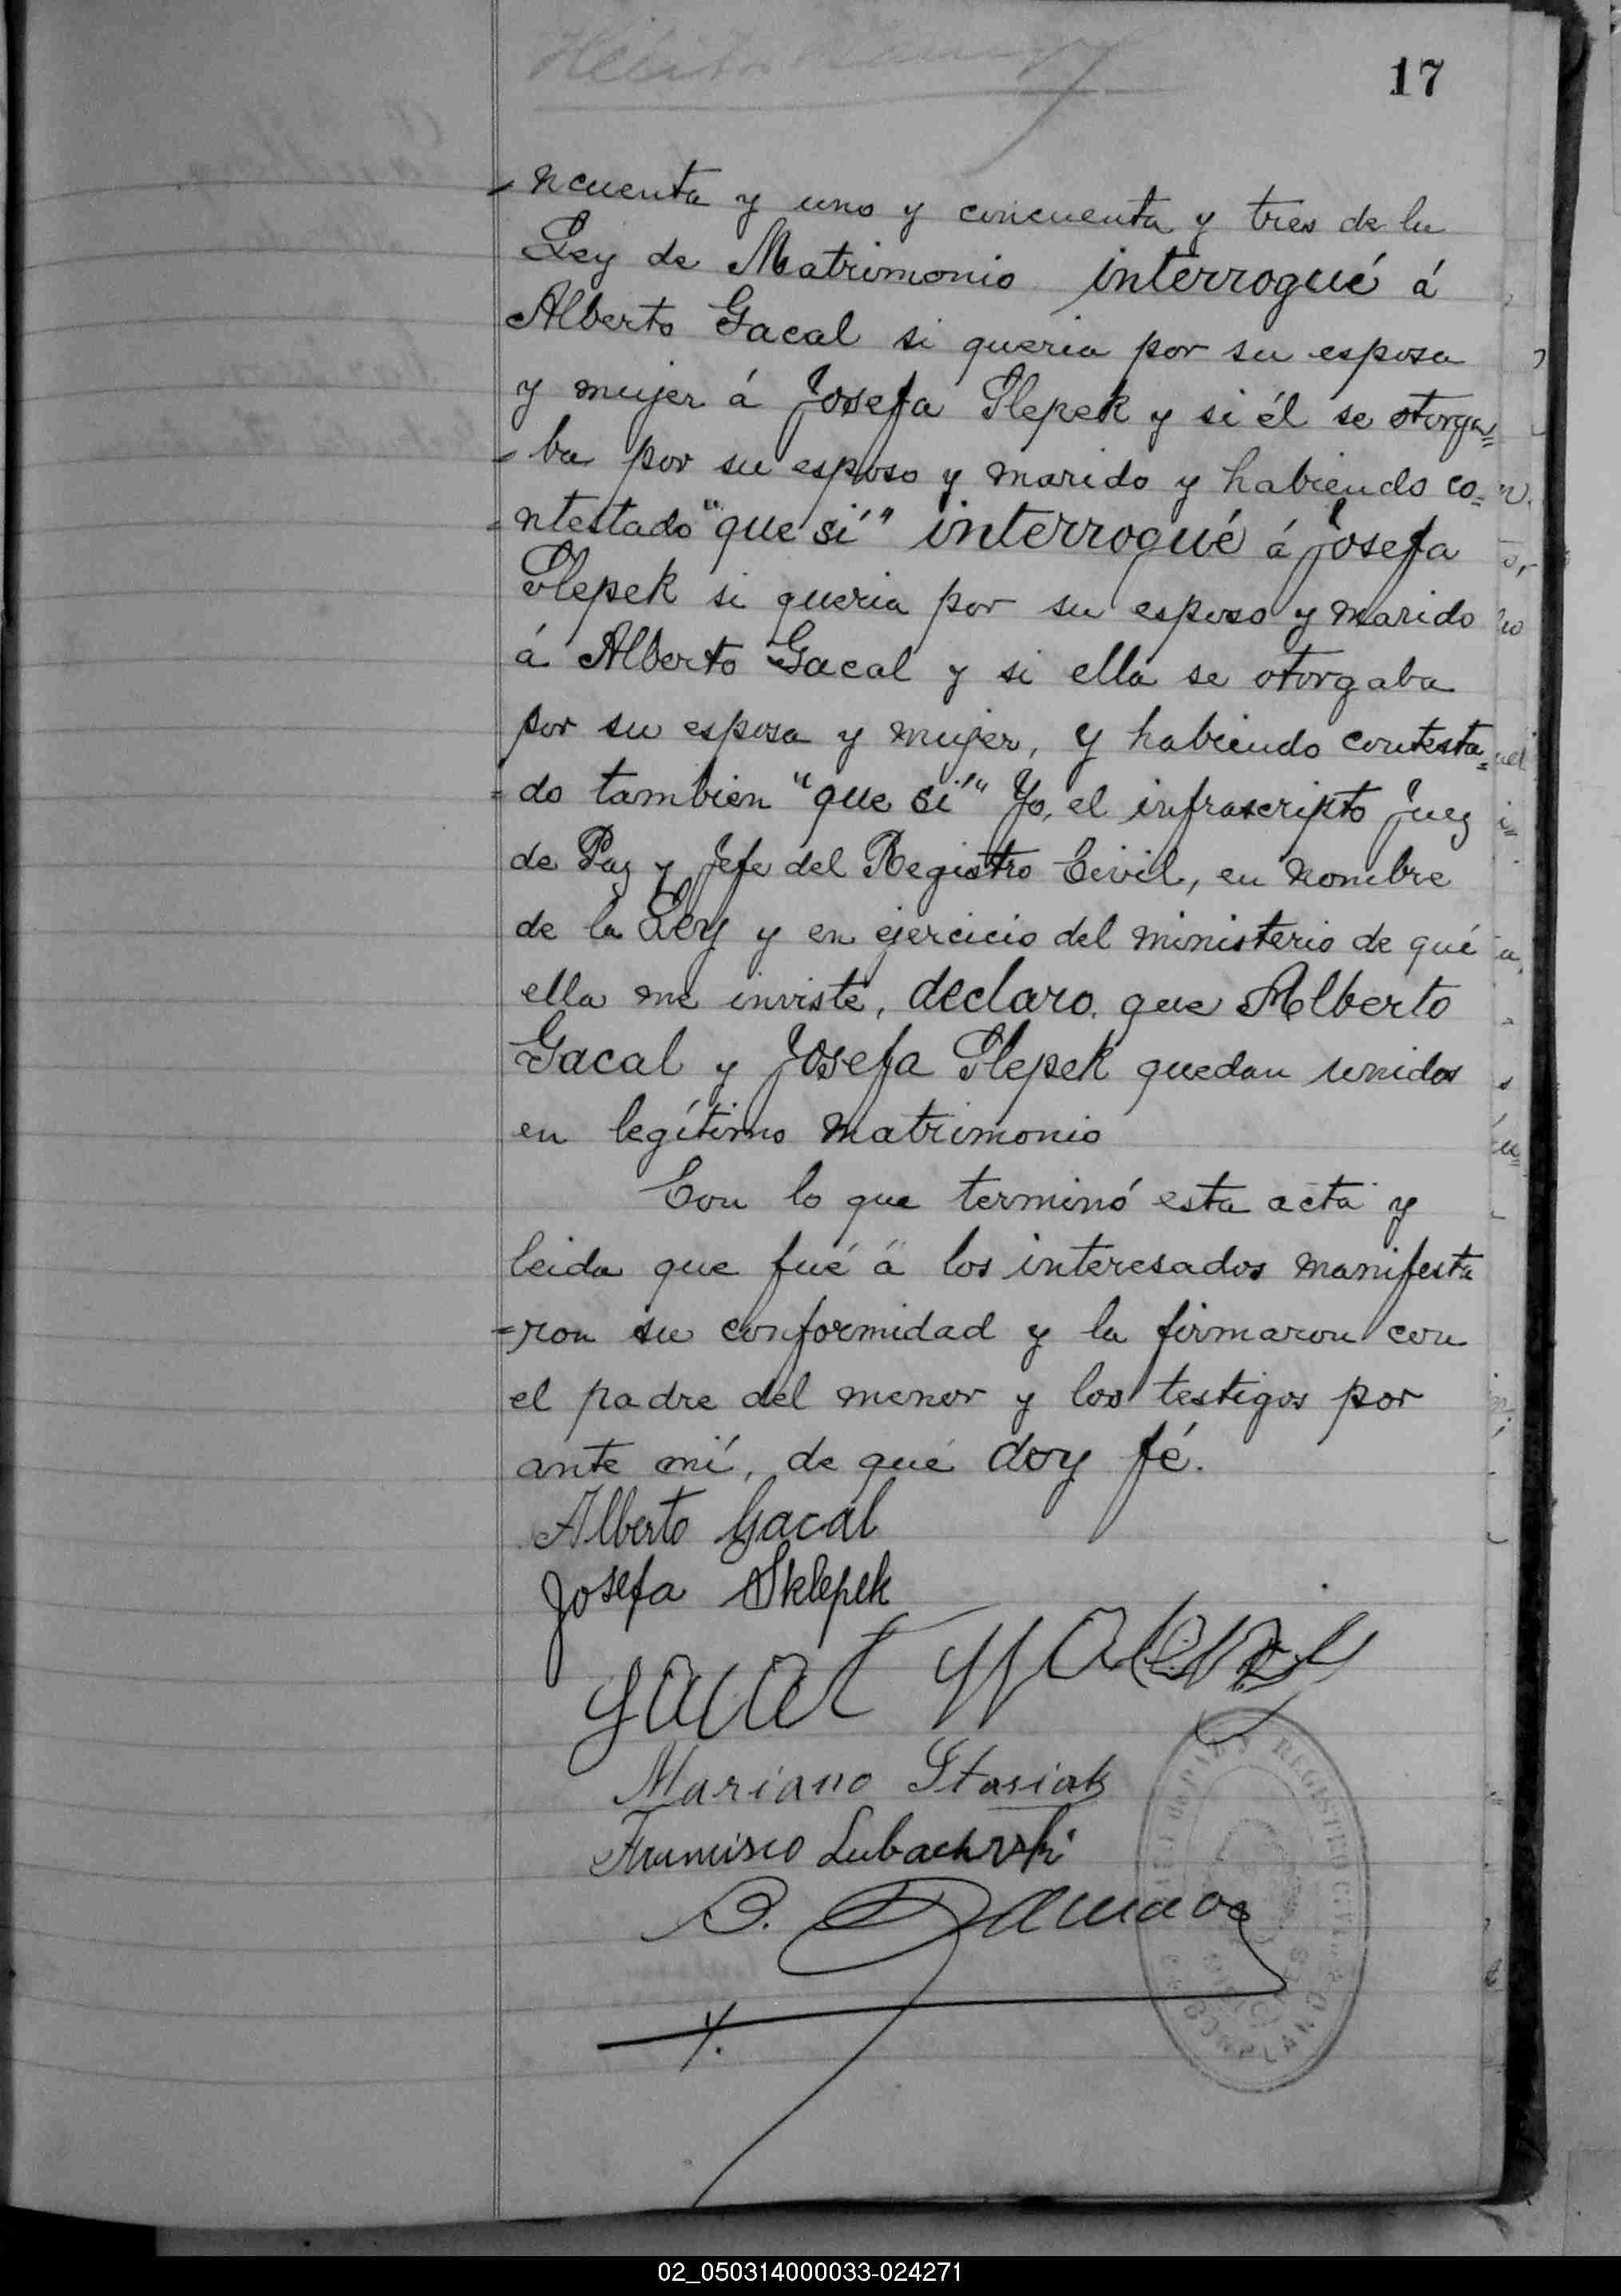 17
-ncuenta y uno y cincuenta y tres de la
Ley de Matrimonio interrogué á
Alberto Gacal si queria por su esposa
y mujer á Josefa Slepek y si él se otorga=
-ba por su esposo y marido y habiendo co=
=ntestado "que sí" interrogué á Josefa
Slepek si queria por su esposo y marido
á Alberto Gacal y si ella se otorgaba
por su esposa y mujer, y habiendo contesta=
=do tambien "que sí" Yo, el infrascripto Juez
de Paz y Jefe del Registro Civil, en nombre
de la Ley y en ejercicio del ministerio de qué
ella me inviste, declaro. que Alberto
Gacal y Josefa Slepek quedan unidos
en legítimo matrimonio
Con lo que terminó esta acta y
leida que fué á los interesados manifesta
=ron su conformidad y la firmaron con
el padre del menor y los testigos por
ante mí, de qué doy fé.
Alberto Gacal
Josefa Sklepek
Gacal
Mariano Stasiak
Francisco
B.
REGISTRO CIVIL
BONPLAND
02_050314000033-024271